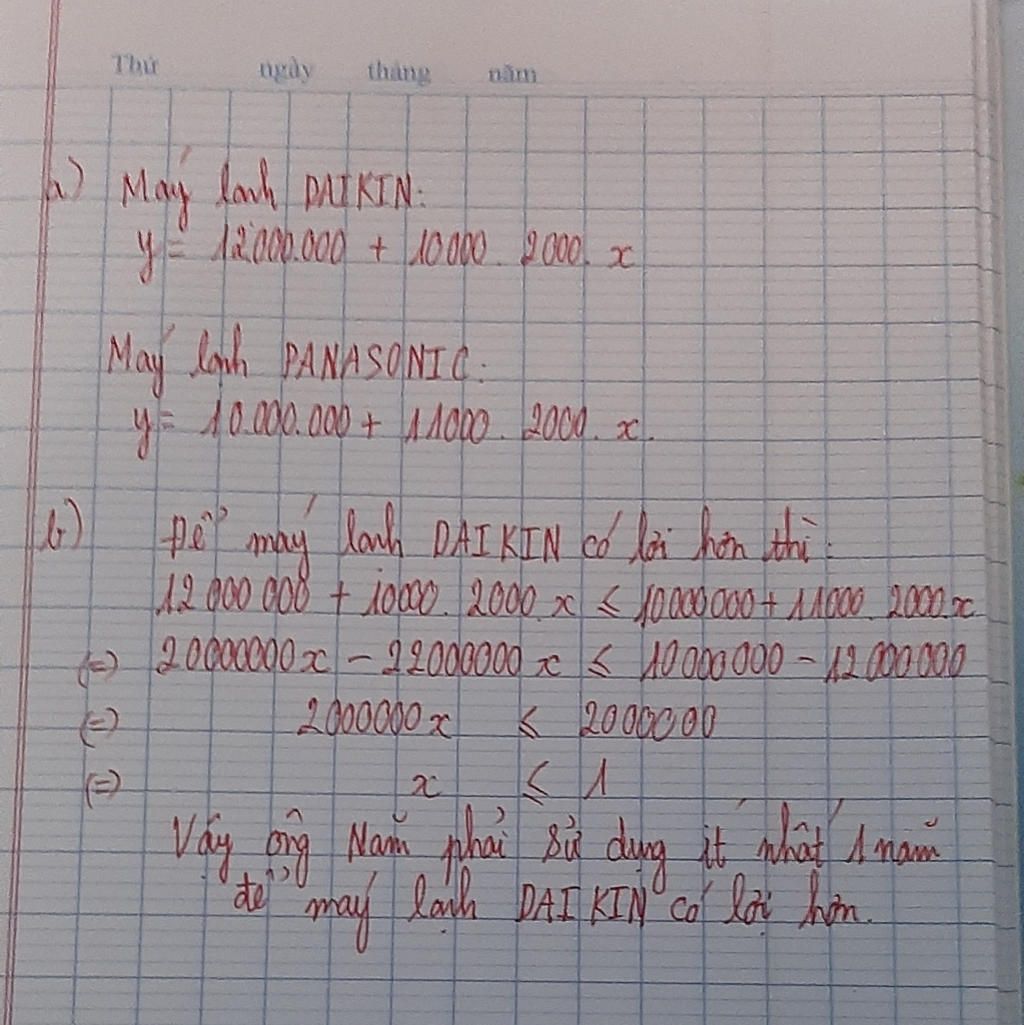 Thứ ngày tháng năm
a) Máy lạnh DAIKIN:
y = 12.000.000 + 10000. 2000. x
Máy lạnh PANASONIC:
y = 10.000.000 + 11000. 2000. x.
b) Để máy lạnh DAIKIN có lời hơn thì:
12 000 000 + 10000. 2000. x ≤ 10000000 + 11000. 2000. x
(=) 20000000x - 22000000x ≤ 10000000 - 12000000
(=) 2000000x ≤ 2000000
(=) x ≤ 1
Vậy ông Năm phải sử dụng ít nhất 1 năm
để máy lạnh DAIKIN có lời hơn.